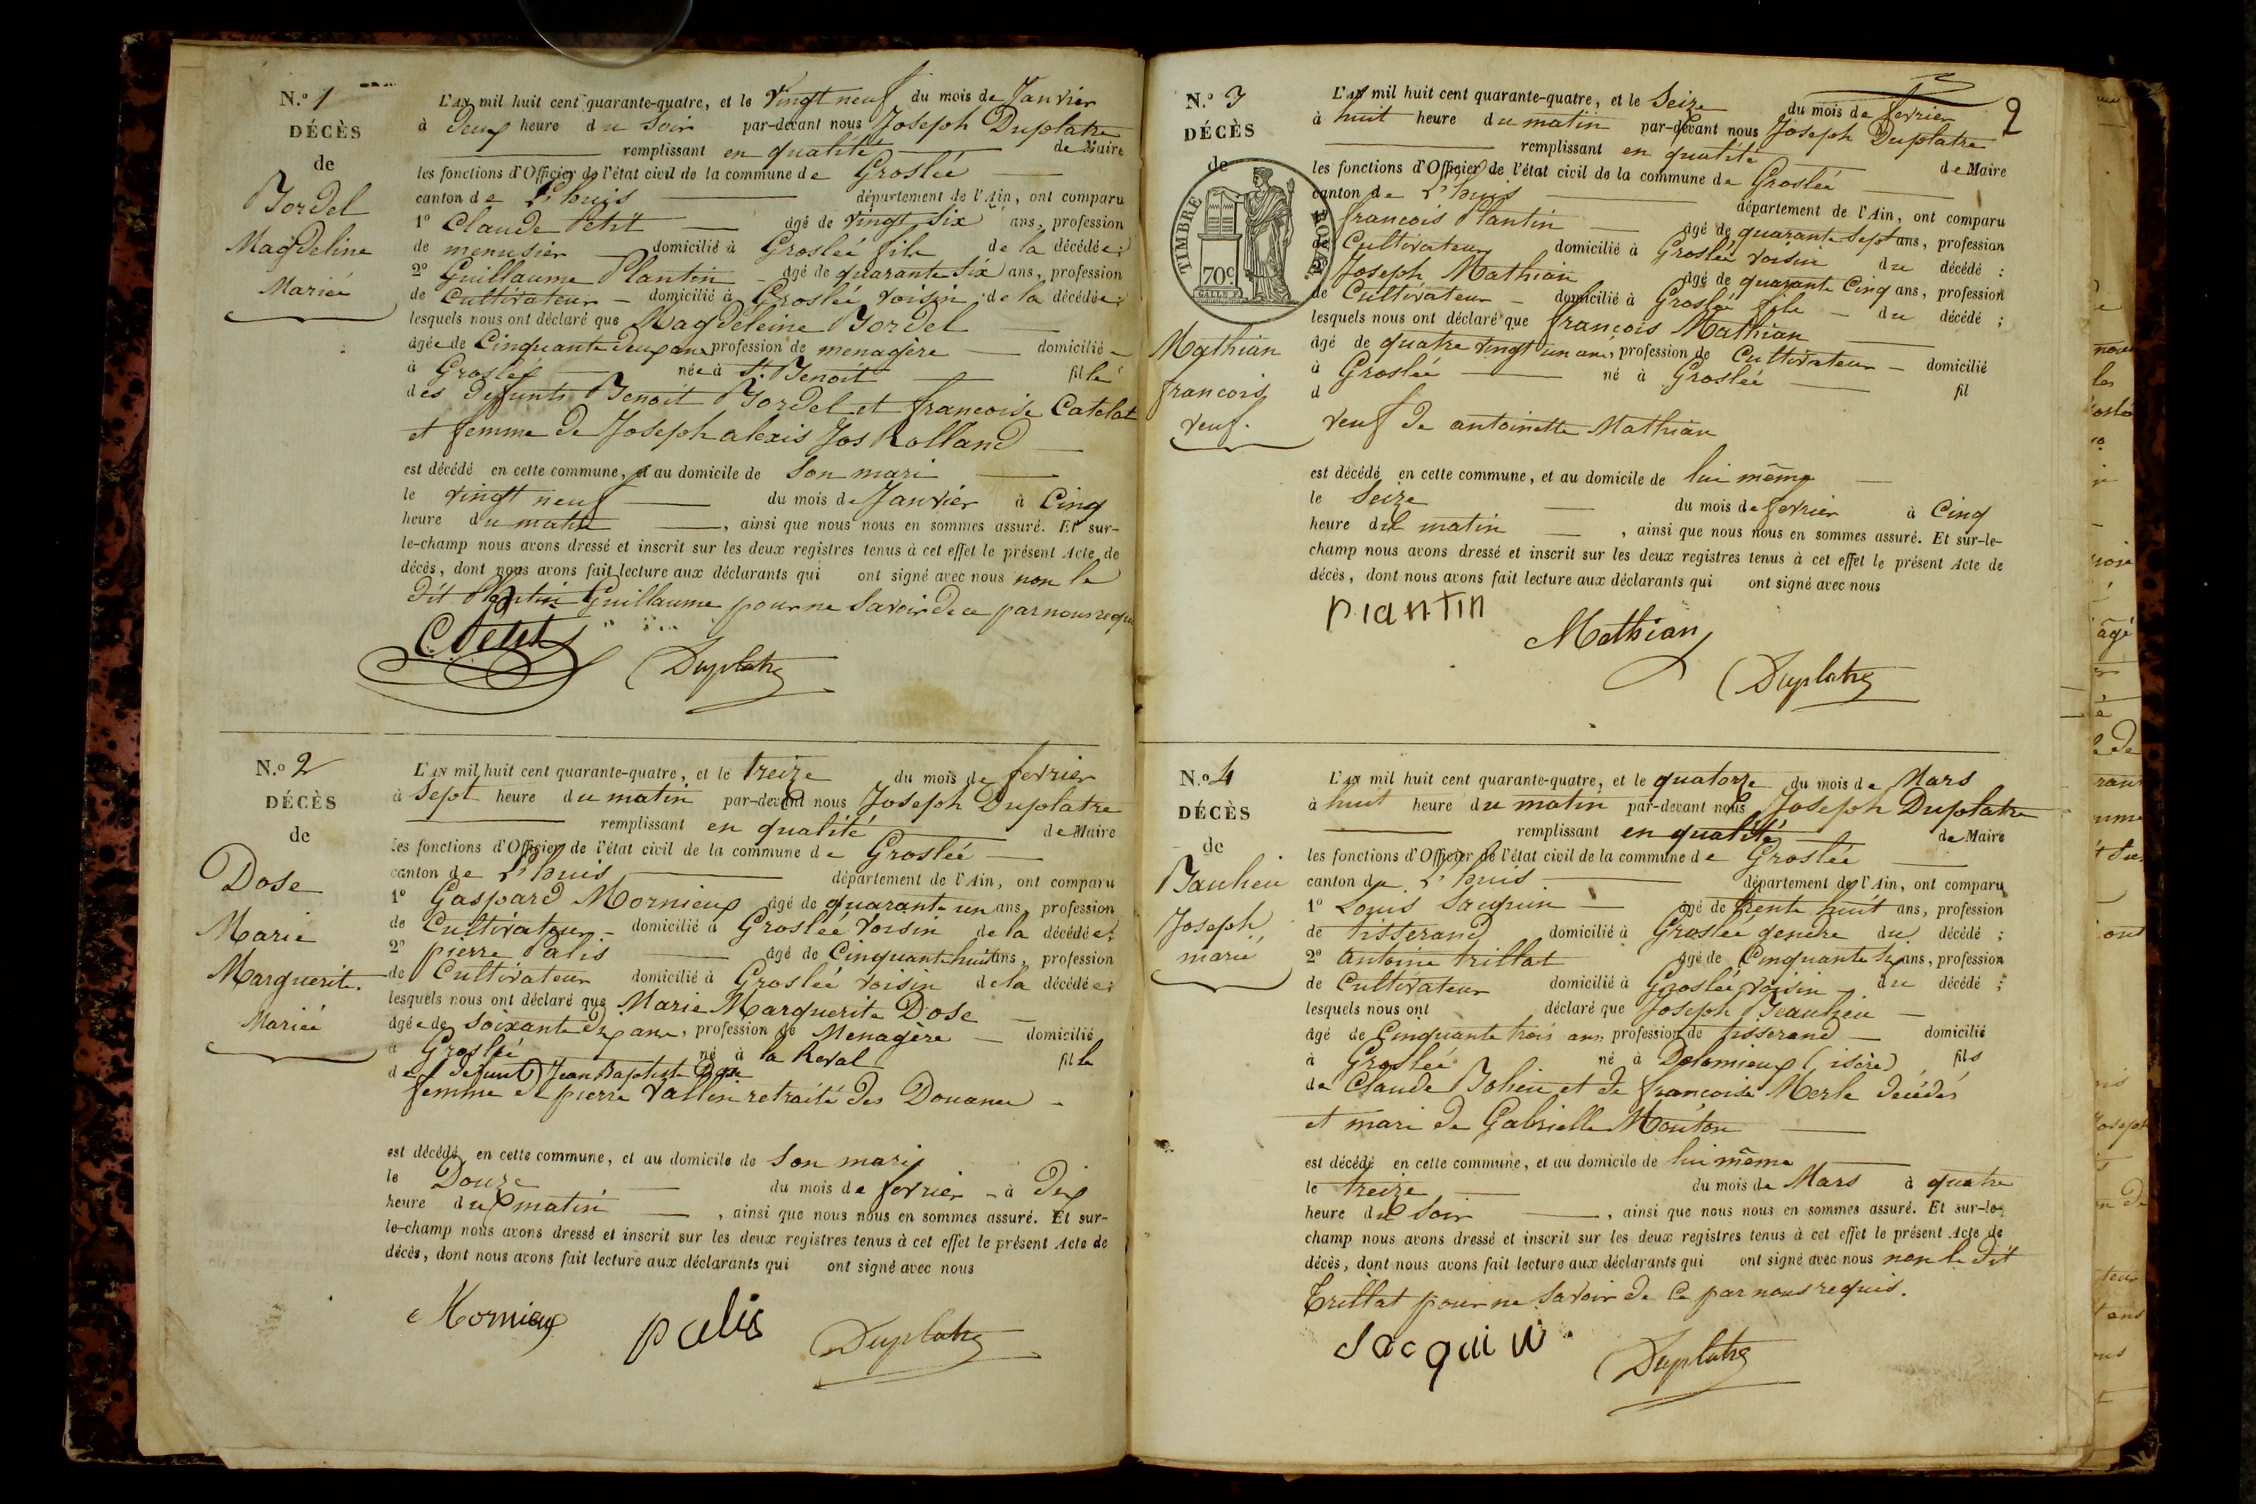 N.º 1
DÉCÈS
de
Bordel
Magdeline
Mariée
L'AN mil huit cent quarante-quatre, et le vingt neuf du mois de Janvier
à deux heure du soir par-devant nous Joseph Duplatre
remplissant en qualité de Maire
les fonctions d'Officier de l'état civil de la commune de Groslée
canton de L'huis département de l'Ain, ont comparu
1º Claude Petit âgé de vingt six ans, profession
de menusier domicilié à Groslée fils de la décédée ;
2º Guillaume Plantin âgé de quarante six ans, profession
de Cultivateur domicilié à Groslée voisin de la décédée ;
lesquels nous ont déclaré que Magdeleine Bordel
âgée de Cinquante deux ans profession de menagère domicilié
à Groslée née à St. Benoit fille
des defunts Benoit Bordel et francoise Catelat
et femme de Joseph alexis Jos Rolland
est décédé en cette commune, et au domicile de son mari
le vingt neuf du mois de Janvier à Cinq
heure du matin , ainsi que nous nous en sommes assuré. Et sur-
le-champ nous avons dressé et inscrit sur les deux registres tenus à cet effet le présent Acte de
décès, dont nous avons fait lecture aux déclarants qui ont signé avec nous non le
dit Plantin Guillaume pour ne savoir de ce par nous requis
C. Petit
Duplatre
N.º 2
DÉCÈS
de
Dose
Marie
Marguerite.
Mariée
L'AN mil huit cent quarante-quatre, et le treize du mois de fevrier
à sept heure du matin par-devant nous Joseph Duplatre
remplissant en qualité de Maire
les fonctions d'Officier de l'état civil de la commune de Groslée
canton de L'huis département de l'Ain, ont comparu
1º Gaspard Mornieux âgé de quarante un ans, profession
de Cultivateur domicilié à Groslée voisin de la décédée ;
2º pierre Palis âgé de Cinquante huit ans, profession
de Cultivateur domicilié à Groslée voisin de la décédée ;
lesquels nous ont déclaré que Marie Marguerite Dose
âgée de soixante dix ans, profession de Menagère domicilié
à Groslée né à la Reval fille
de defunt Jean Baptiste Dose
femme de pierre Vallin retraité des Douanes
est décédé en cette commune, et au domicile de son mari
le Douze du mois de fevrier à dix
heure du matin , ainsi que nous nous en sommes assuré. Et sur-
le-champ nous avons dressé et inscrit sur les deux registres tenus à cet effet le présent Acte de
décès, dont nous avons fait lecture aux déclarants qui ont signé avec nous
Mornieux
palis
Duplatre
2
N.º 3
DÉCÈS
de
TIMBRE ROYAL
70c
Mathian
francois
veuf.
L'AN mil huit cent quarante-quatre, et le seize du mois de fevrier
à huit heure du matin par-devant nous Joseph Duplatre
remplissant en qualité de Maire
les fonctions d'Officier de l'état civil de la commune de Groslée
canton de L'huis département de l'Ain, ont comparu
francois Plantin âgé de quarante sept ans, profession
de Cultivateur domicilié à Groslée voisin du décédé ;
Joseph Mathian âgé de quarante Cinq ans, profession
de Cultivateur domicilié à Groslée fils du décédé ;
lesquels nous ont déclaré que francois Mathian
âgé de quatre vingt un ans, profession de Cultivateur domicilié
à Groslée né à Groslée fil
d
veuf de antoinette Mathian
est décédé en cette commune, et au domicile de lui même
le seize du mois de fevrier à Cinq
heure du matin , ainsi que nous nous en sommes assuré. Et sur-le-
champ nous avons dressé et inscrit sur les deux registres tenus à cet effet le présent Acte de
décès, dont nous avons fait lecture aux déclarants qui ont signé avec nous
plantin
Mathian
Duplatre
N.º 4
DÉCÈS
de
Baulieu
Joseph
marié
L'AN mil huit cent quarante-quatre, et le quatorze du mois de Mars
à huit heure du matin par-devant nous Joseph Duplatre
remplissant en qualité de Maire
les fonctions d'Officier de l'état civil de la commune de Groslée
canton de L'huis département de l'Ain, ont comparu
1º Louis âgé de trente huit ans, profession
de tisserand domicilié à Groslée gendre du décédé ;
2º Antoine trillat âgé de Cinquante six ans, profession
de Cultivateur domicilié à Groslée voisin du décédé ;
lesquels nous ont déclaré que Joseph Beaulieu
âgé de Cinquante trois ans, profession de tisserand domicilié
à Groslée né à Dolomieux (isère) fils
de Claude Bolieu et de francoise Merle décédés
et mari de Gabrielle Mouton
est décédé en cette commune, et au domicile de lui même
le treize du mois de Mars à quatre
heure du soir , ainsi que nous nous en sommes assuré. Et sur-le-
champ nous avons dressé et inscrit sur les deux registres tenus à cet effet le présent Acte de
décès, dont nous avons fait lecture aux déclarants qui ont signé avec nous non le dit
Trillat pour ne savoir de ce par nous requis.
Jacquin
Duplatre